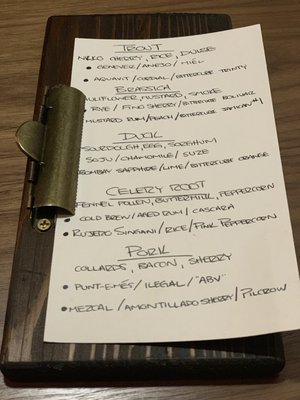 TROUT
CHERRY, RICE, DULSE
• GENEVER/AÑEJO/MIEL
• AQUAVIT/CORDIAL/BITTERCUBE TRINITY
BRASSICA
CAULIFLOWER, MUSTARD, SMOKE
RYE/FINO SHERRY/BITTERCUBE BOLIVAR
MUSTARD RUM/PEACH/BITTERCUBE JAMAICAN #1
DUCK
SOURDOUGH, EGG, SORGHUM
SOJU/CHAMOMILE/SUZE
BOMBAY SAPPHIRE/LIME/BITTERCUBE ORANGE
CELERY ROOT
FENNEL POLLEN, BUTTERMILK, PEPPERCORN
• COLD BREW/AGED RUM/CASCARA
• RUJERO SINGANI/RICE/PINK PEPPERCORN
PORK
COLLARDS, BACON, SHERRY
• PUNT-EMÉS/ILEGAL/"ABV"
• MEZCAL/AMONTILLADO SHERRY/PILCROW